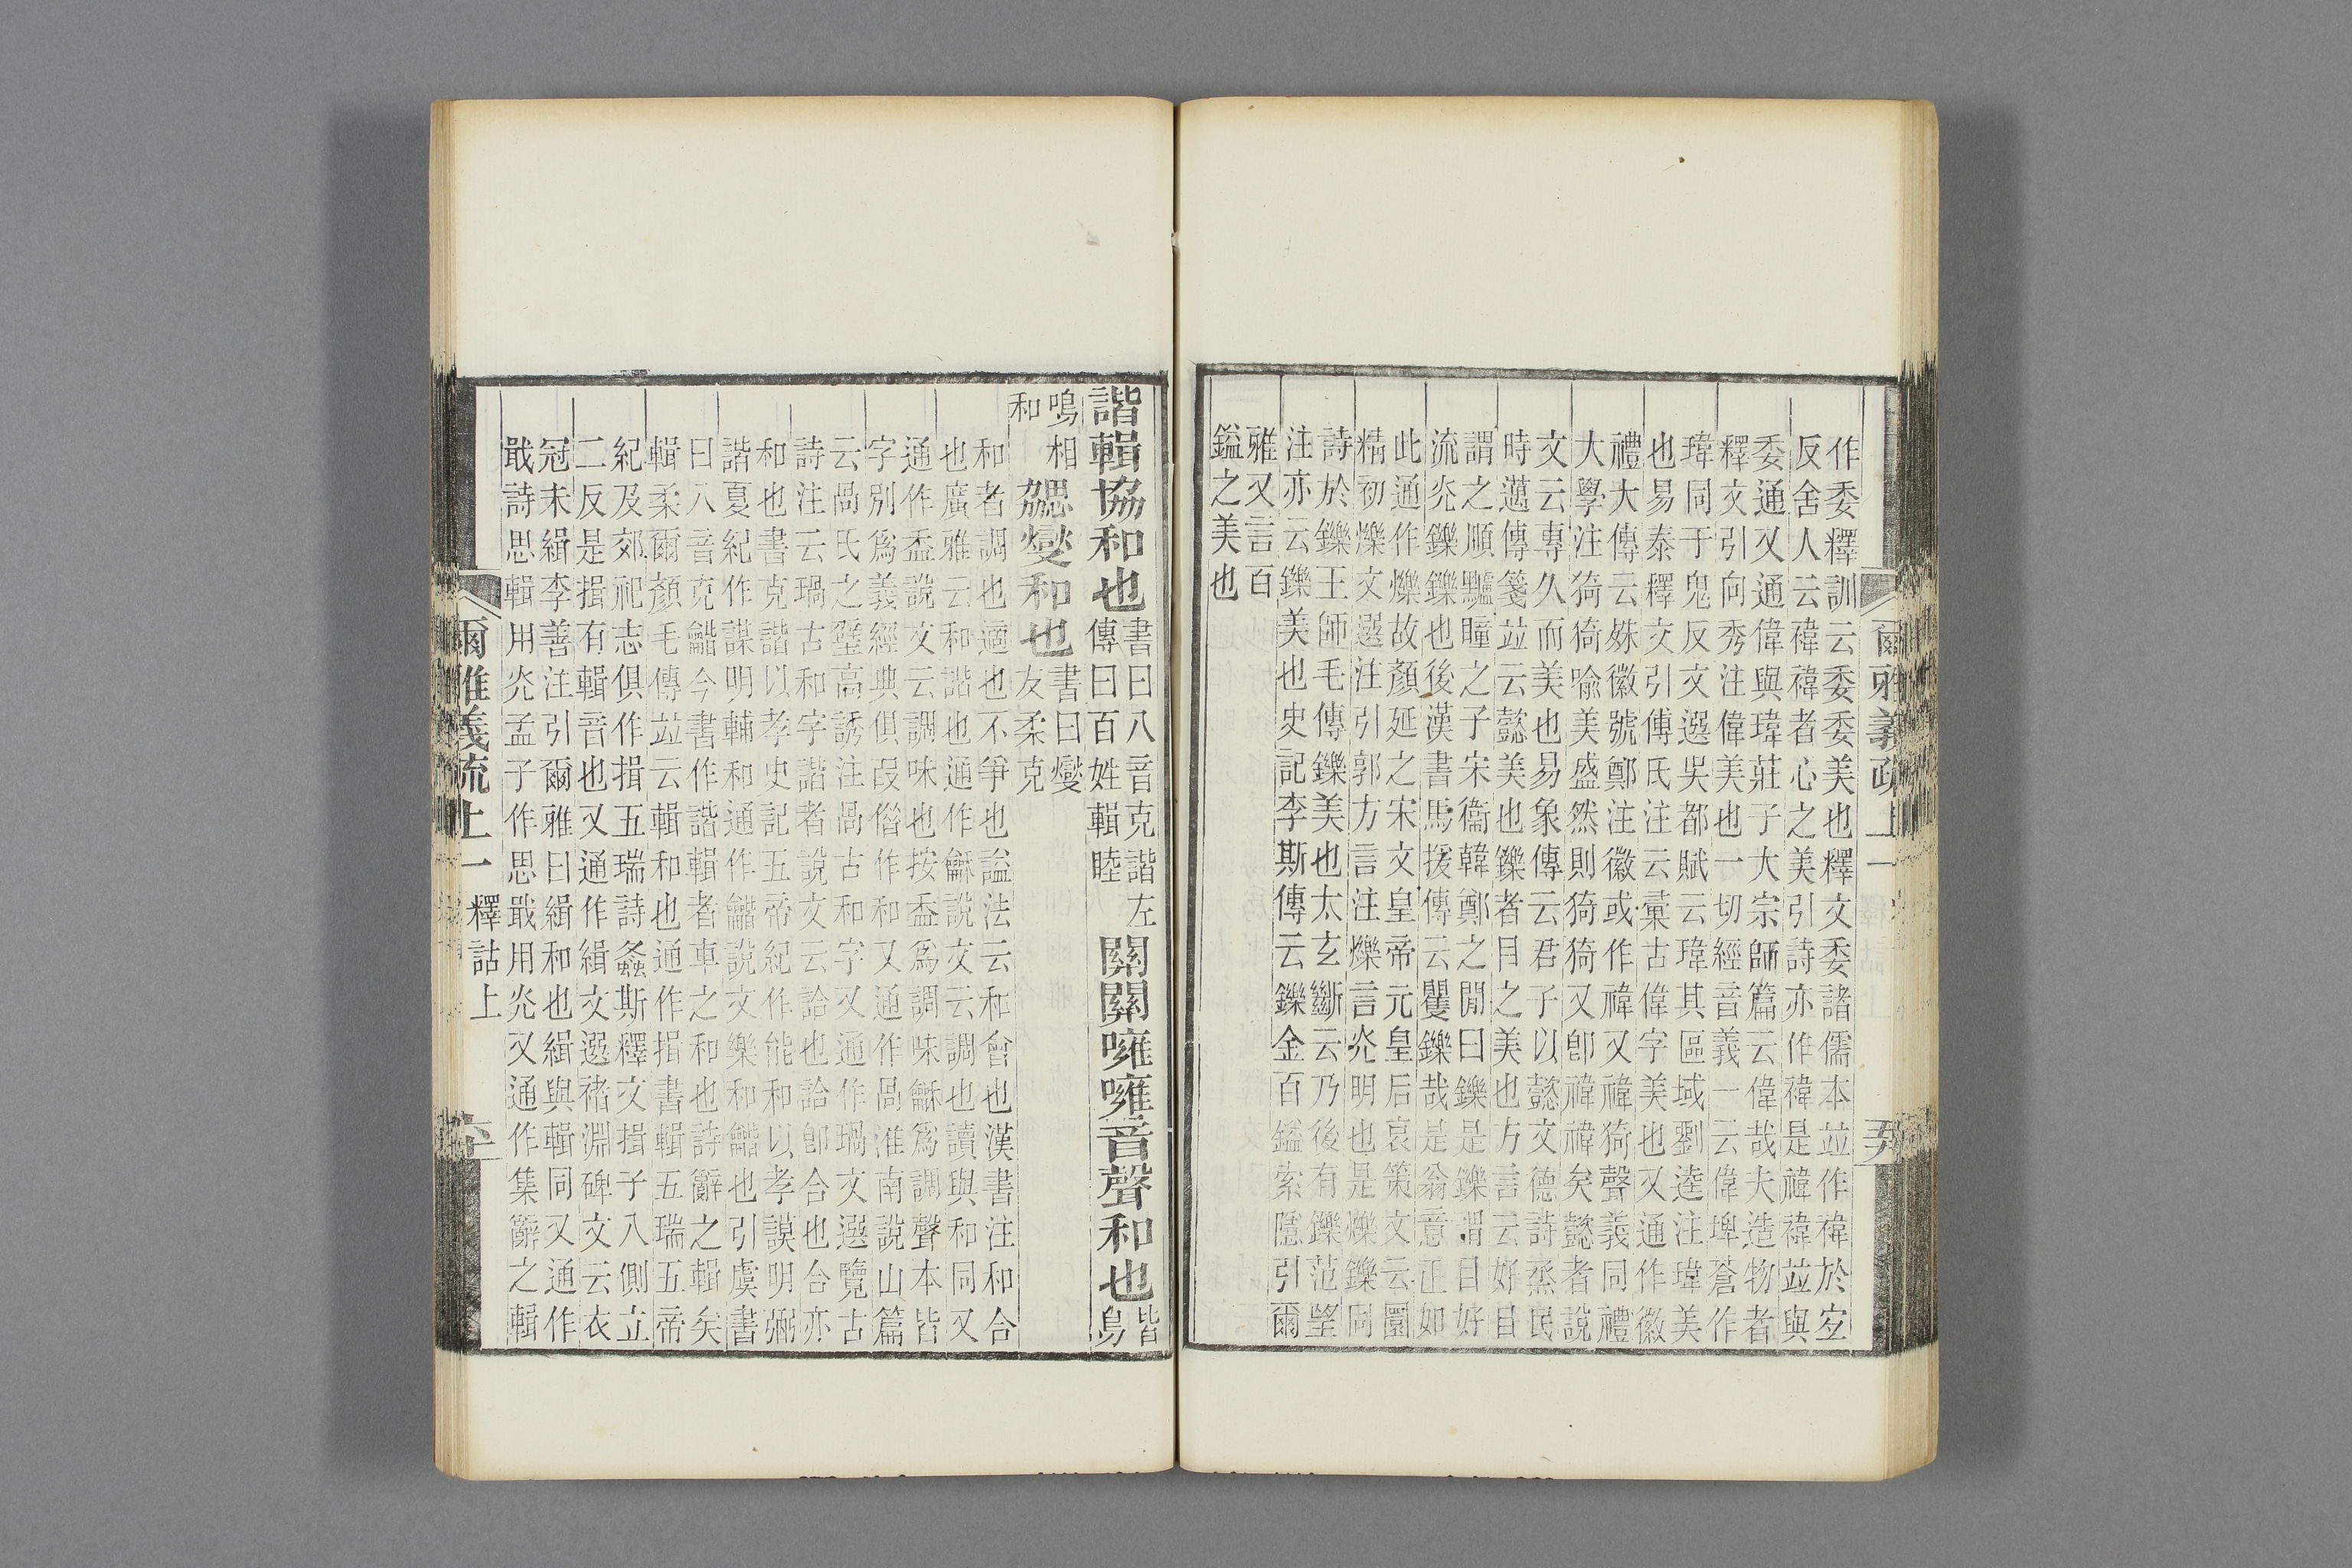 作委釋訓云委委美也釋文委諸儒本並作褘於宐
反舍人云褘褘者心之美引詩亦作褘是褘褘並與
委通又通偉與瑋莊子大宗師篇云偉哉夫造物者
釋文引向秀注偉美也一切經音義一云偉埤蒼作
瑋同于鬼反文選吳都賦云瑋其區域劉逵注瑋美
也易泰釋文引傅氏注云彙古偉字美也又通作徽
禮大傳云殊徽號鄭注徽或作褘又褘猗聲義同禮
大學注猗猗喻美盛然則猗猗又卽褘褘矣懿者說
文云專久而美也易象傳云君子以懿文德詩烝民
時邁傳箋並云懿美也鑠者目之美也方言云好目
謂之順驢瞳之子宋衞韓鄭之閒曰鑠是鑠謂目好
流灮鑠鑠也後漢書馬援傳云矍鑠哉是翁意正如
此通作爍故顏延之宋文皇帝元皇后哀策文云圜
精初爍文選注引郭方言注爍言灮明也是爍鑠同
詩於鑠王師毛傳鑠美也太玄斷云乃後有鑠范望
注亦云鑠美也史記李斯傳云鑠金百鎰索隱引爾
雅又言百
鎰之美也
爾雅義疏 上一
諧輯協和也
書曰八音克諧左
傳曰百姓輯睦
關關噰噰音聲和也
皆鳥
鳴相
和
勰燮和也
書曰燮
友柔克
和者調也適也不爭也謚法云和會也漢書注和合
也廣雅云和諧也通作龢說文云調也讀與和同又
通作盉說文云調味也按盉爲調味龢爲調聲本皆
字別爲義經典俱叚借作和又通作咼淮南說山篇
云咼氏之璧高誘注咼古和字又通作琄文選覽古
詩注云琄古和字諧者說文云詥也詥卽合也合亦
和也書克諧以孝史記五帝紀作能和以孝謨明弼
諧夏紀作謀明輔和通作龤說文樂和龤也引虞書
曰八音克龤今書作諧輯者車之和也詩辭之輯矣
輯柔爾顏毛傳並云輯和也通作揖書輯五瑞五帝
紀及郊祀志俱作揖五瑞詩螽斯釋文揖子八側立
二反是揖有輯音也又通作緝文選褚淵碑文云衣
冠未緝李善注引爾雅曰緝和也緝與輯同又通作
戢詩思輯用灮孟子作思戢用灮又通作集辭之輯
爾雅義疏 上一 釋詁上